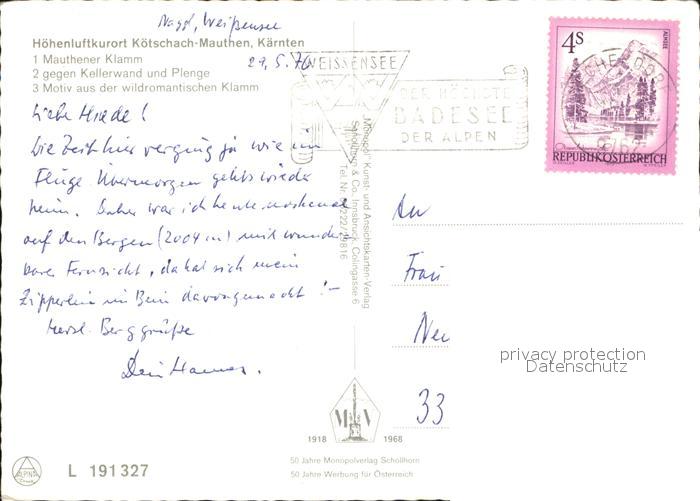 Nagel, Weißensee
29.5.76
Höhenluftkurort Kötschach-Mauthen, Kärnten
1 Mauthener Klamm
2 gegen Kellerwand und Plenge
3 Motiv aus der wildromantischen Klamm
WEISSENSEE
DER HÖCHSTE
BADESEE
DER ALPEN
4s
ALMSEE
REPUBLIK ÖSTERREICH
Liebe Friede!
Die Zeit hier verging ja wie im
Fluge. Übermorgen gehts wieder
heim. Daher war ich heute nochmal
auf den Bergen (2004 m) mit wunder-
barer Fernsicht, da hat sich mein
Zipperlein im Bein davongemacht!–
Herzl. Berggrüße
Dein Hannes.
"Monopol" Kunst- und Ansichtskarten-Verlag
Schöllhorn & Co. Innsbruck, Colingasse 6
An
Frau
Neu
33
privacy protection
Datenschutz
M V
1918 1968
50 Jahre Monopolverlag Schöllhorn
50 Jahre Werbung für Österreich
ALPINA
L 191 327